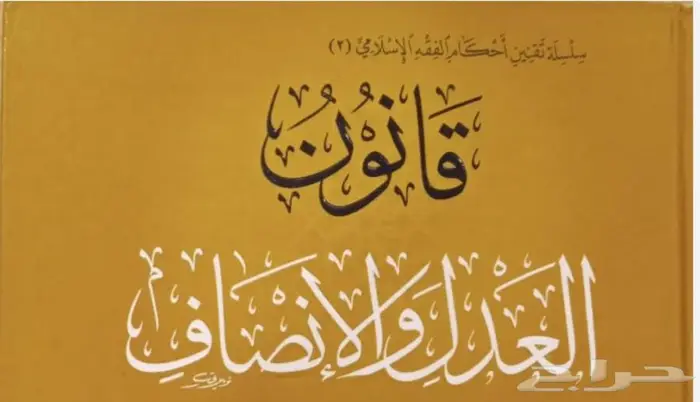 سِلْسِلَة تَقْنِينِ أَحْكَامِ الفِقْهِ الإِسْلَامِيِّ (٢)
قَانُونُ
العَدْلِ وَالإِنْصَافِ
حراج